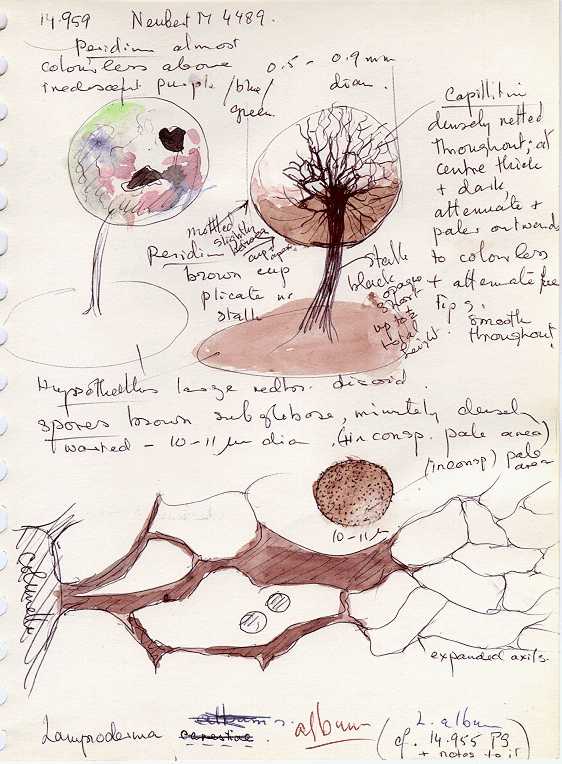 14.959 Neubert M 4489.
Peridium almost
colourless above
iridescent purple/blue/
green.
0.5 - 0.9 mm
diam.
Capillitium
densely netted
throughout; at
centre thick
+ dark,
attenuate +
paler outwards
to colourless
+ attenuate free
tips.
smooth
throughout.
mottled
slightly
cup
Peridium
brown cup
plicate nr
stalk
stalk
black
opaque
short
up to ½
total
height.
Hypothallus large redbr. discoid.
spores brown subglobose, minutely densely
warted - 10-11 µm dia (+ inconsp. pale area)
(inconsp) pale
area
10-11µ
columella
expanded axils.
Lamproderma album
L. album
(cf. 14.955 PG
+ notes to it)